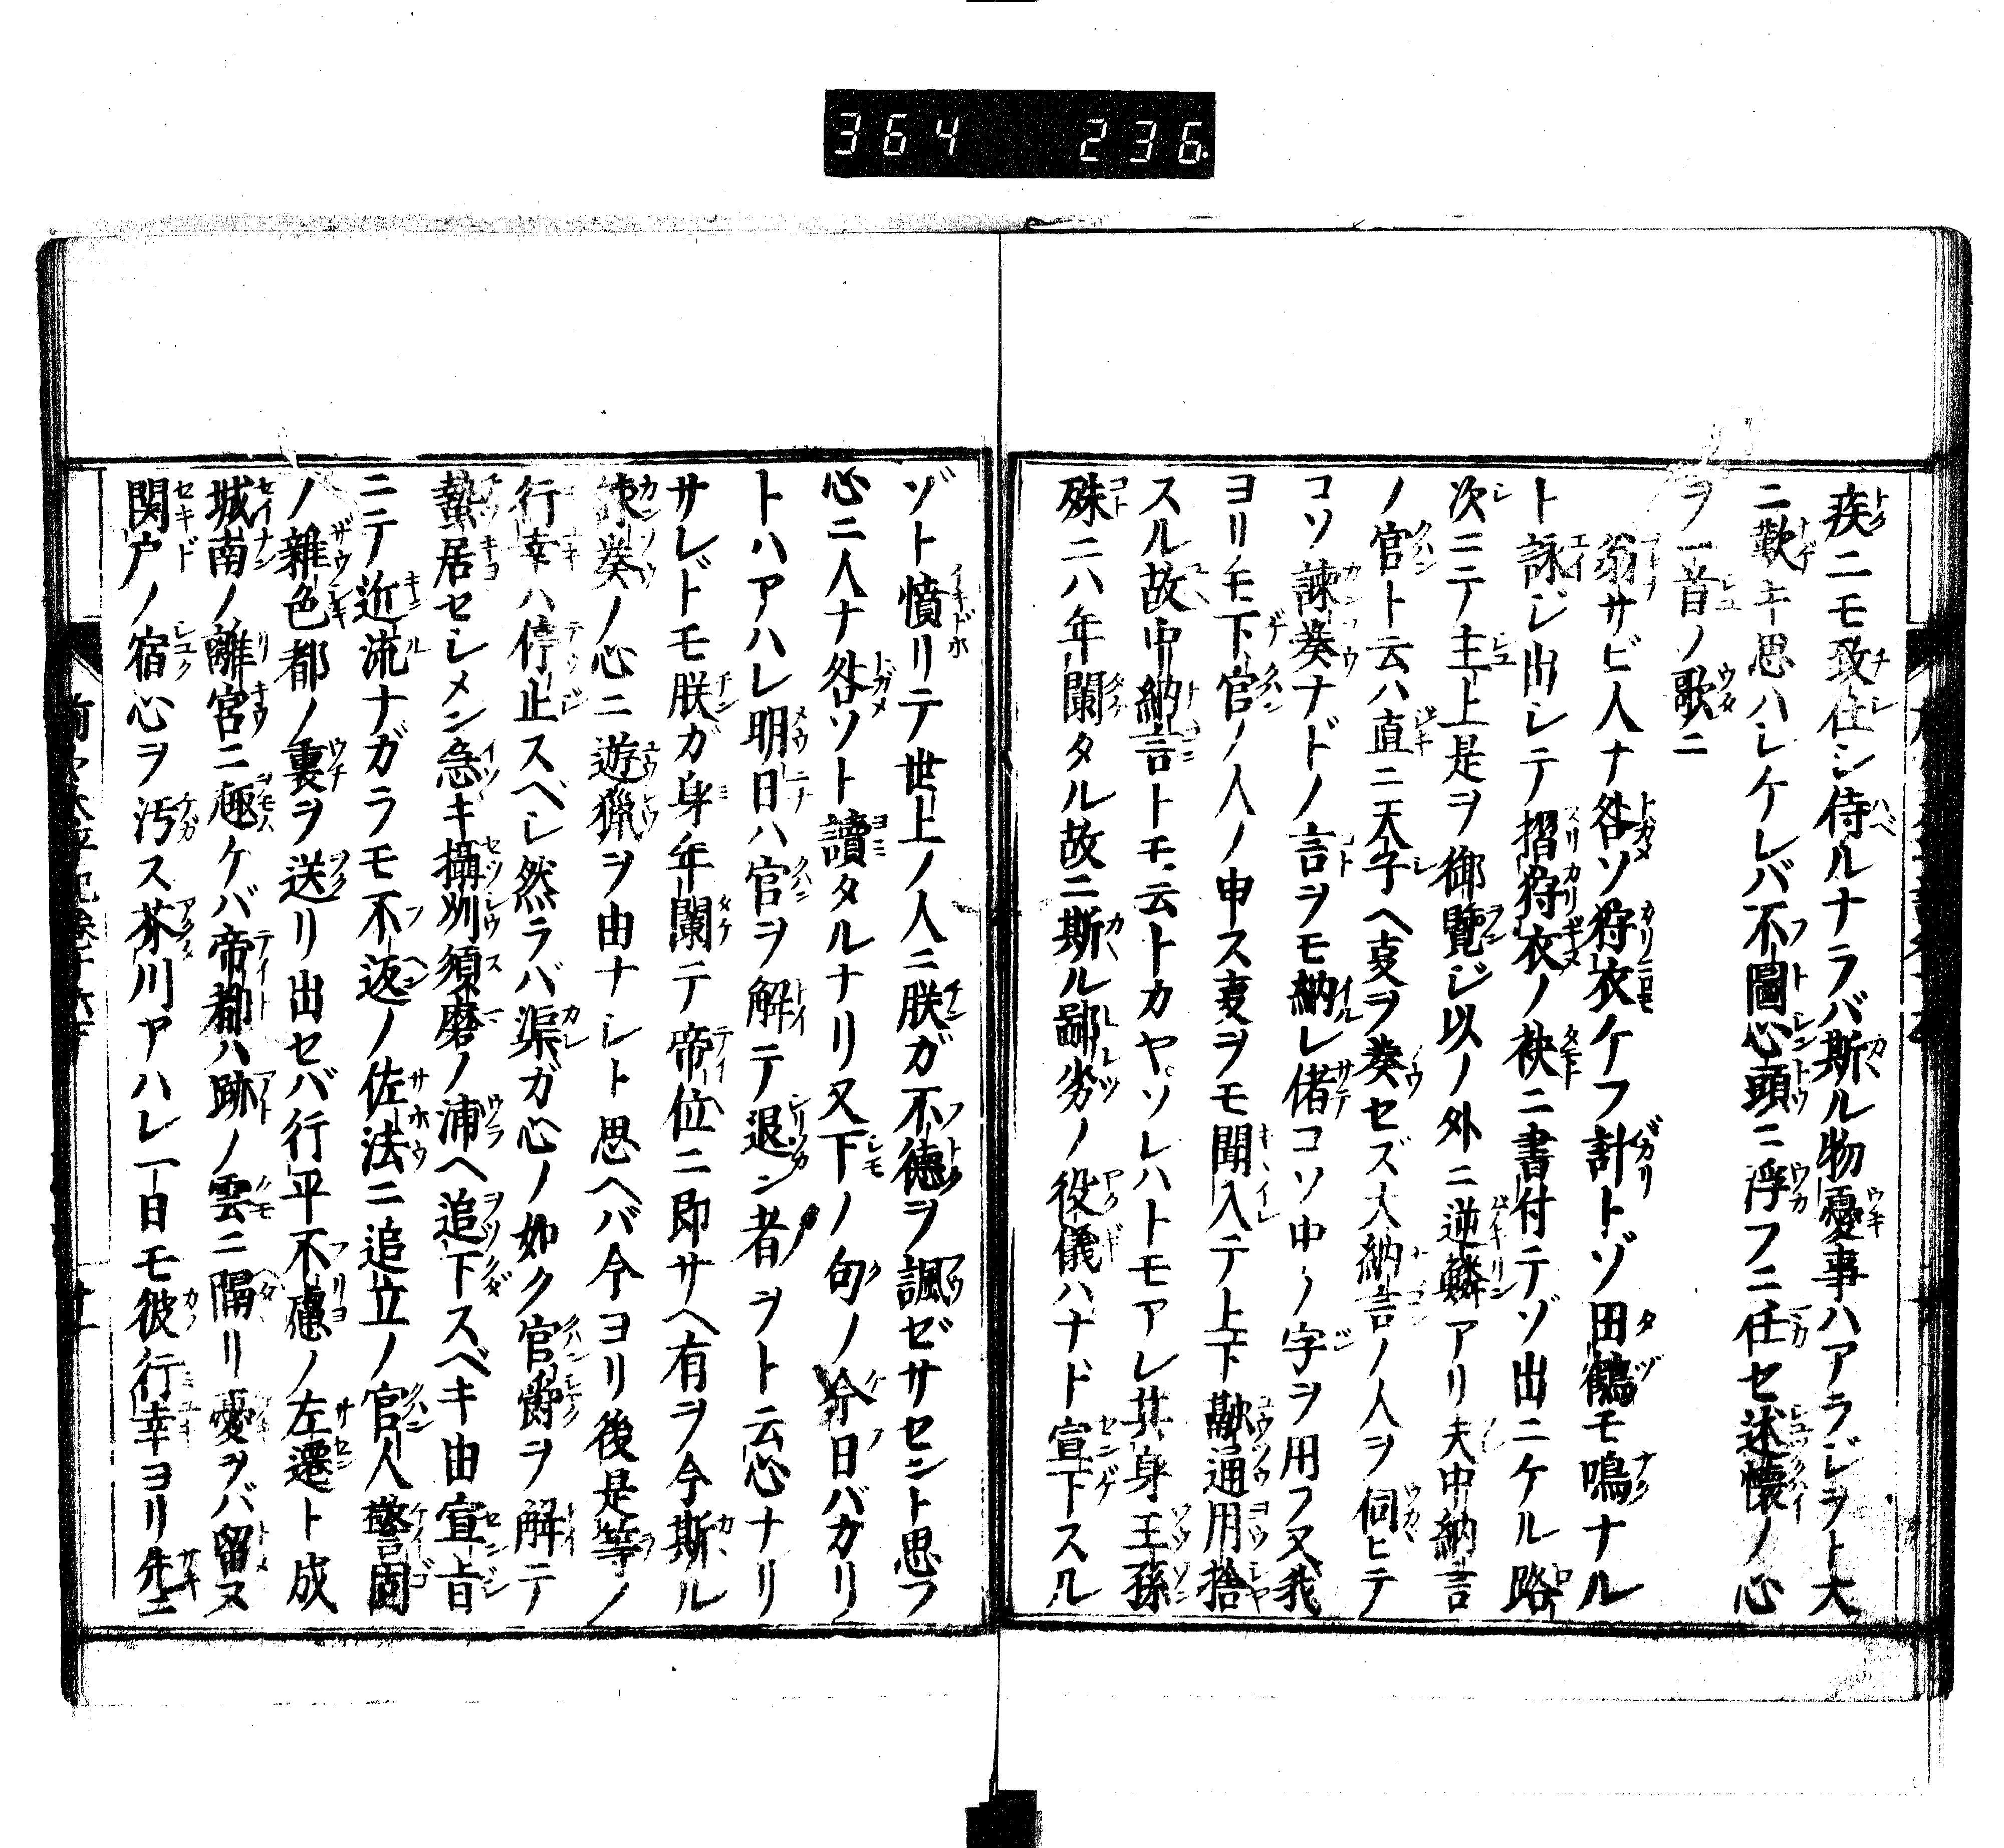 364 236
疾ニモ致仕シ侍ルナラバ斯ル物憂事ハアラジヲト大
ニ歎キ思ハレケレバ不圖心頭ニ浮フニ任セ述懐ノ心
ヲ一首ノ歌ニ
翁サビ人ナ咎ソ狩衣ケフ計トゾ田鶴モ鳴ナル
ト詠ジ出シテ摺狩衣ノ袂ニ書付テゾ出ニケル路
次ニテ主上是ヲ御覽ジ以ノ外ニ逆鱗アリ夫中納言
ノ官ト云ハ直ニ天子ヘ叓ヲ奏セズ大納言ノ人ヲ伺ヒテ
コソ諫奏ナドノ言ヲモ納レ偖コソ中ノ字ヲ用フ又我
ヨリモ下官ノ人ノ申ス叓ヲモ聞入テ上下融通用捨
スル故中納言トモ云トカヤソレハトモアレ其身王孫
殊ニハ年闌タル故ニ斯ル鄙劣ノ役儀ハナド宣下スル
ゾト憤リテ世上ノ人ニ朕ガ不徳ヲ諷ゼサセント思フ
心ニ人ナ咎ソト讀タルナリ又下ノ句ノ今日バカリ
トハアハレ明日ハ官ヲ解テ退ン者ヲト云心ナリ
サレドモ朕ガ身年闌テ帝位ニ即サヘ有ヲ今斯ル
諫奏ノ心ニ遊獵ヲ由ナシト思ヘバ今ヨリ後是等ノ
行幸ハ停止スヘシ然ラバ渠ガ心ノ如ク官爵ヲ解テ
蟄居セシメン急キ攝州須磨ノ浦ヘ追下スベキ由宣旨
ニテ近流ナガラモ不返ノ佐法ニ追立ノ官人警固
ノ雜色都ノ裏ヲ送リ出セバ行平不慮ノ左遷ト成
城南ノ離宮ニ趣ケバ帝都ハ跡ノ雲ニ隔リ憂ヲバ留ヌ
関戸ノ宿心ヲ汚ス芥川アハレ一日モ彼行幸ヨリ先ニ